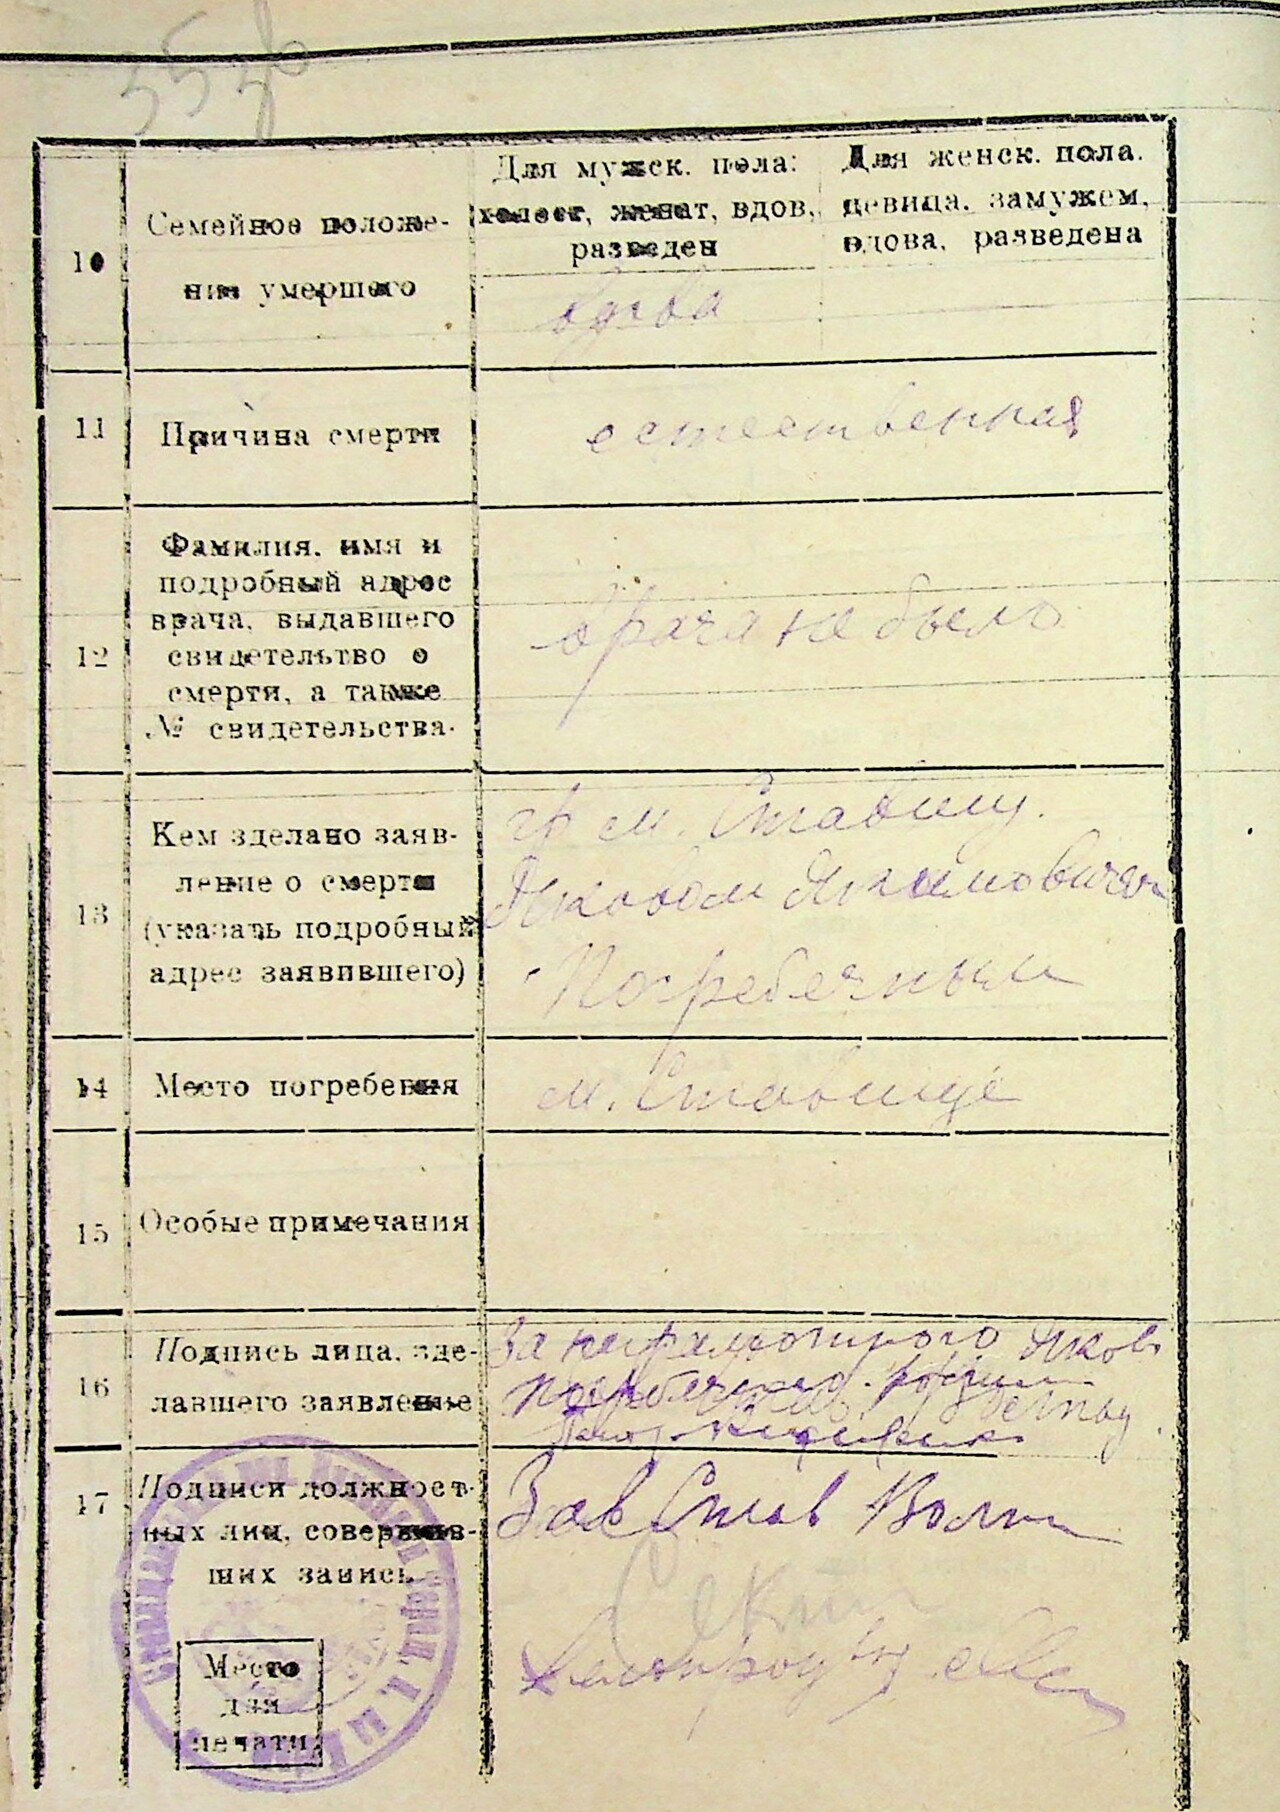 Для мужск. пола:
холост, женат, вдов,
разведен
Для женск. пола.
девица. замужем,
вдова, разведена
10
Семейное положе-
ние умершего
вдова
11
Причина смерти
естественная
12
Фамилия, имя и
подробный адрес
врача, выдавшего
свидетельство о
смерти, а также
№ свидетельства.
врача не было
13
Кем зделано заяв-
ление о смерти
(указать подробный
адрес заявившего)
гр м. Ставищ.
Яковом Якимовичем
Погребечным
14
Место погребения
м. Ставище
15
Особые примечания
16
Подпись лица, зде-
лавшего заявление
За неграмотного Яков
17
Подписи должност-
ных лиц, совершив-
ших запись
Зав Став
Место
для
печати